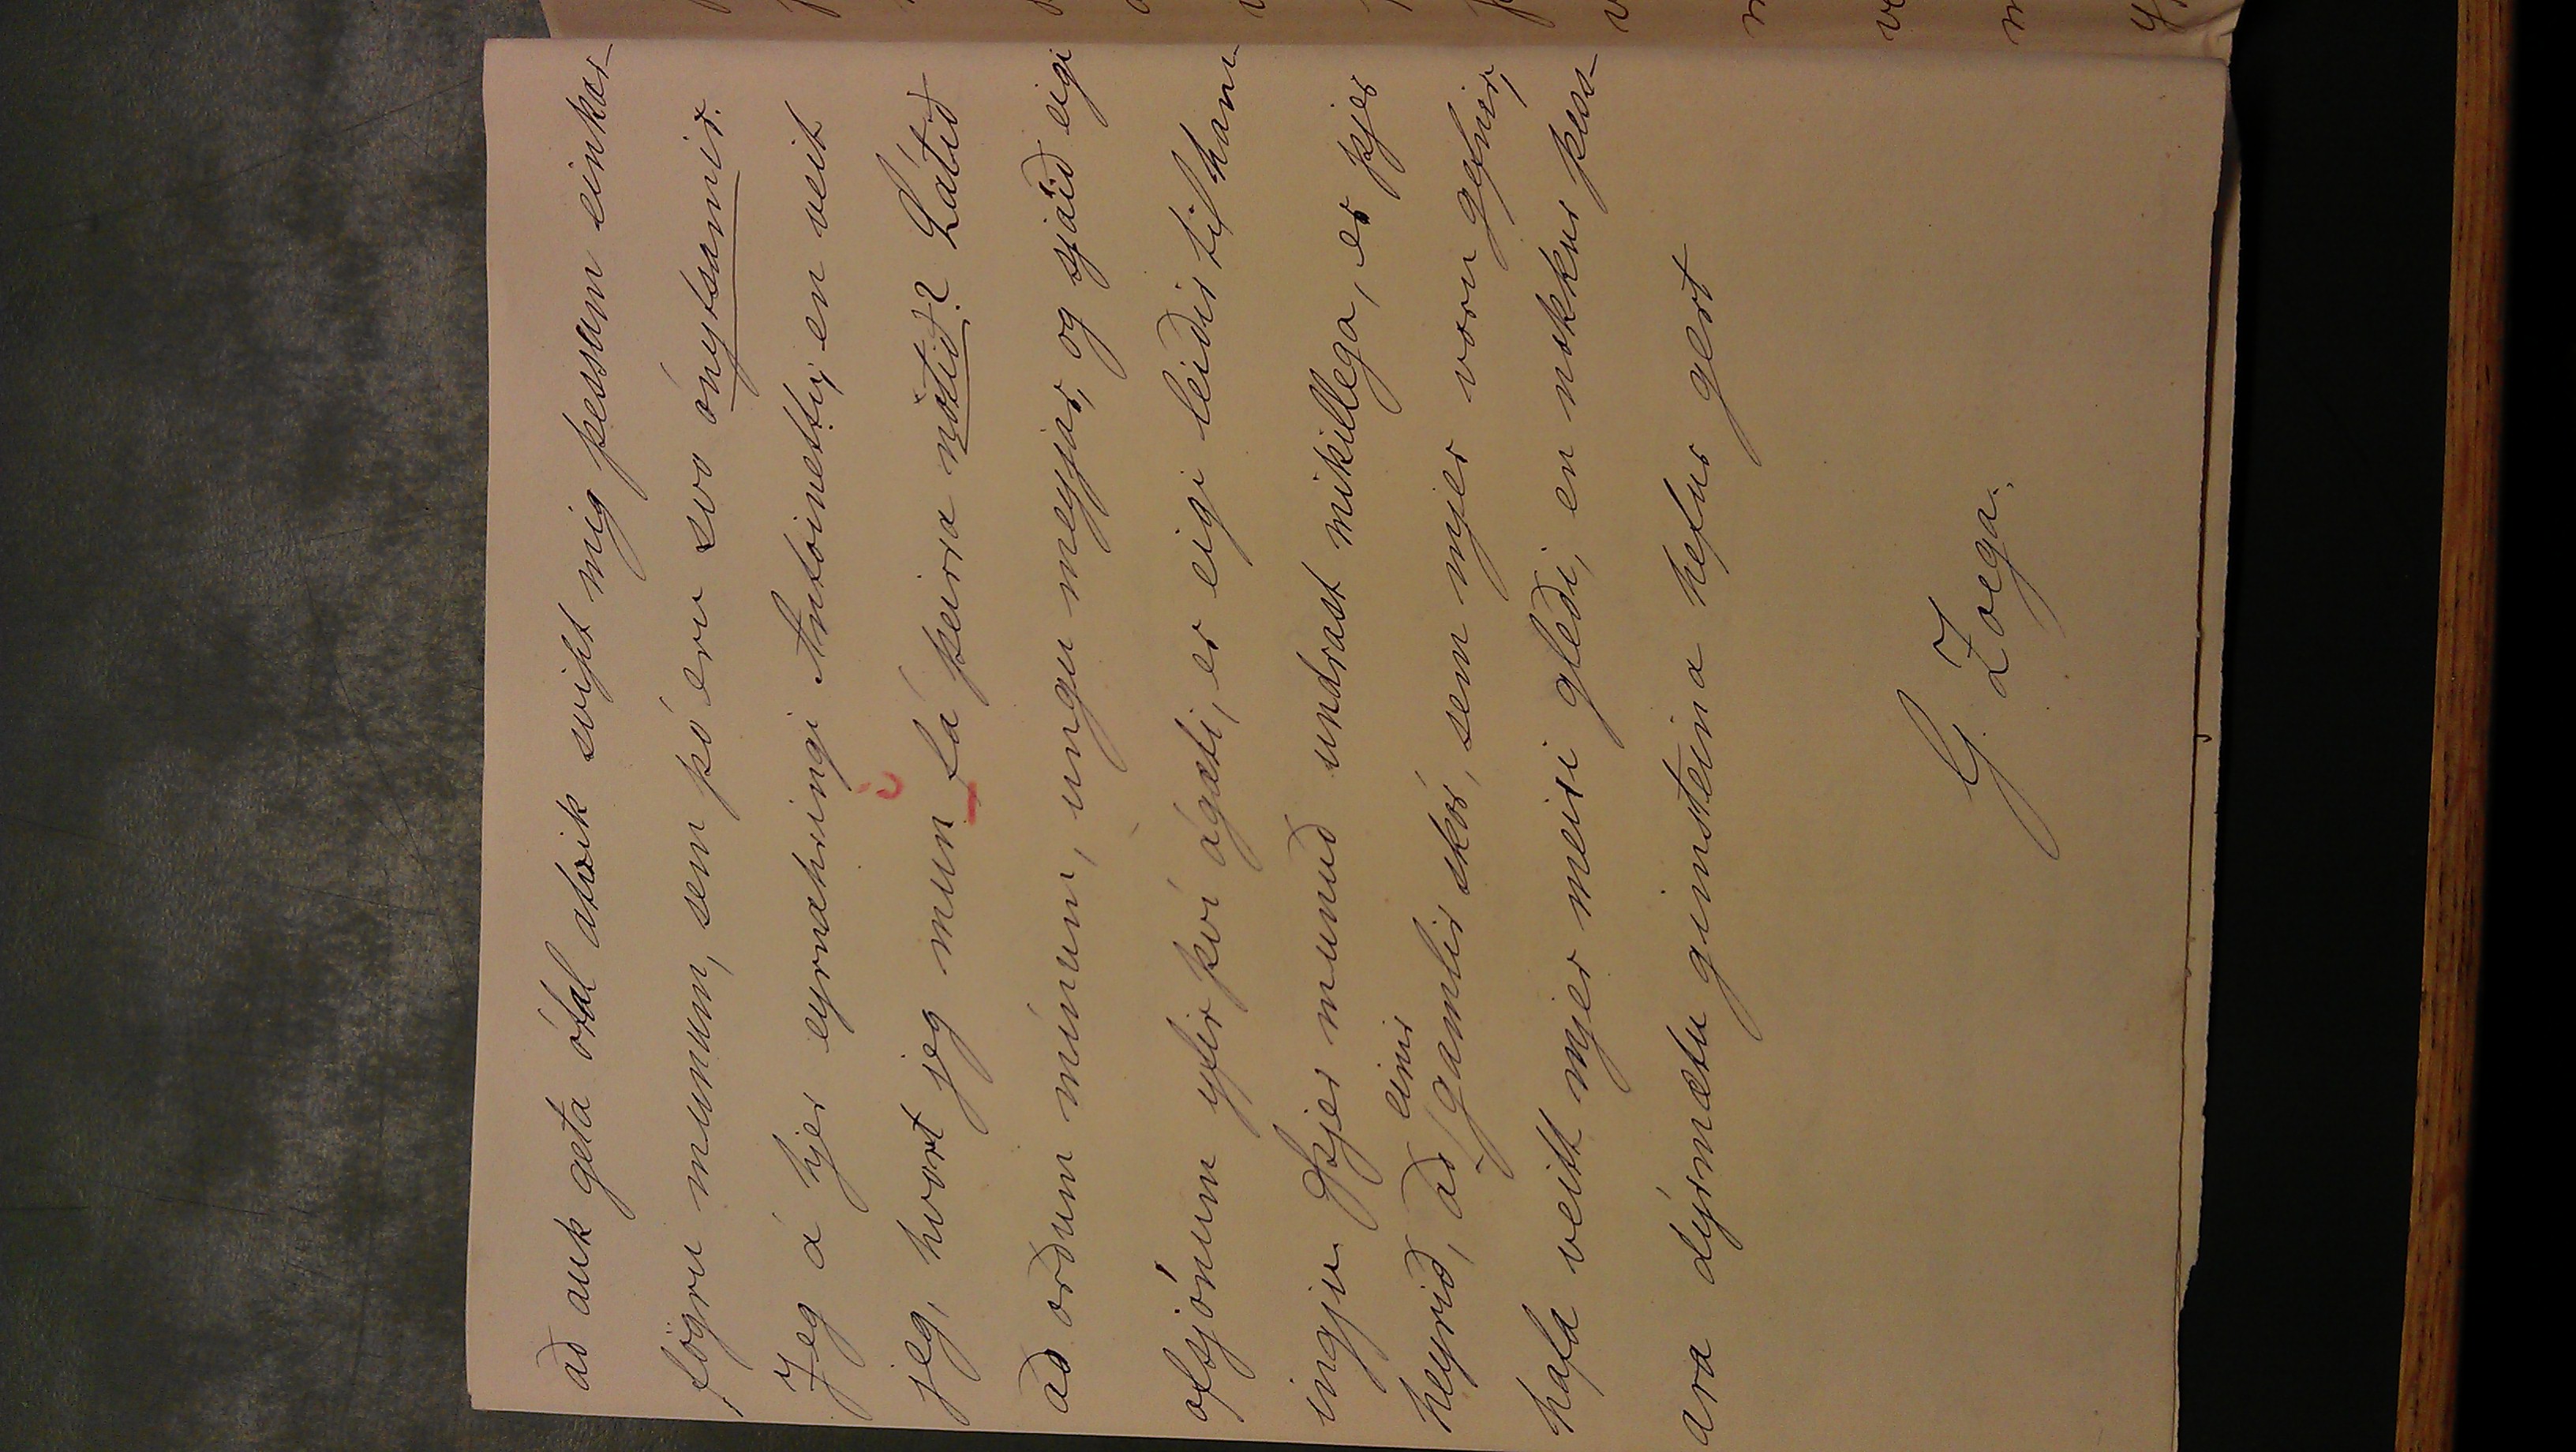 að auk geta ótal atvik svipt mig þessum einkar-
fögru munum, sem þó eru svo ónytsamir.
Jeg á hjer eyrnahringi Antoinettu, en veit
jeg, hvort jeg mun fá þeirra notið? Látið
að orðum mínum, ungu meyjar, og sjáið eigi
ofsjónum yfir því ágæti, er eigi leiðir til ham-
ingju. Þjer munuð undrast mikillega, er þjer
heyrið, að einir gamlir skór, sem mjer voru gefnir,
hafa veitt mjer meiri gleði, en nokkur þess-
ara dýrmætu gimsteina hefur gert
G. Zoega.